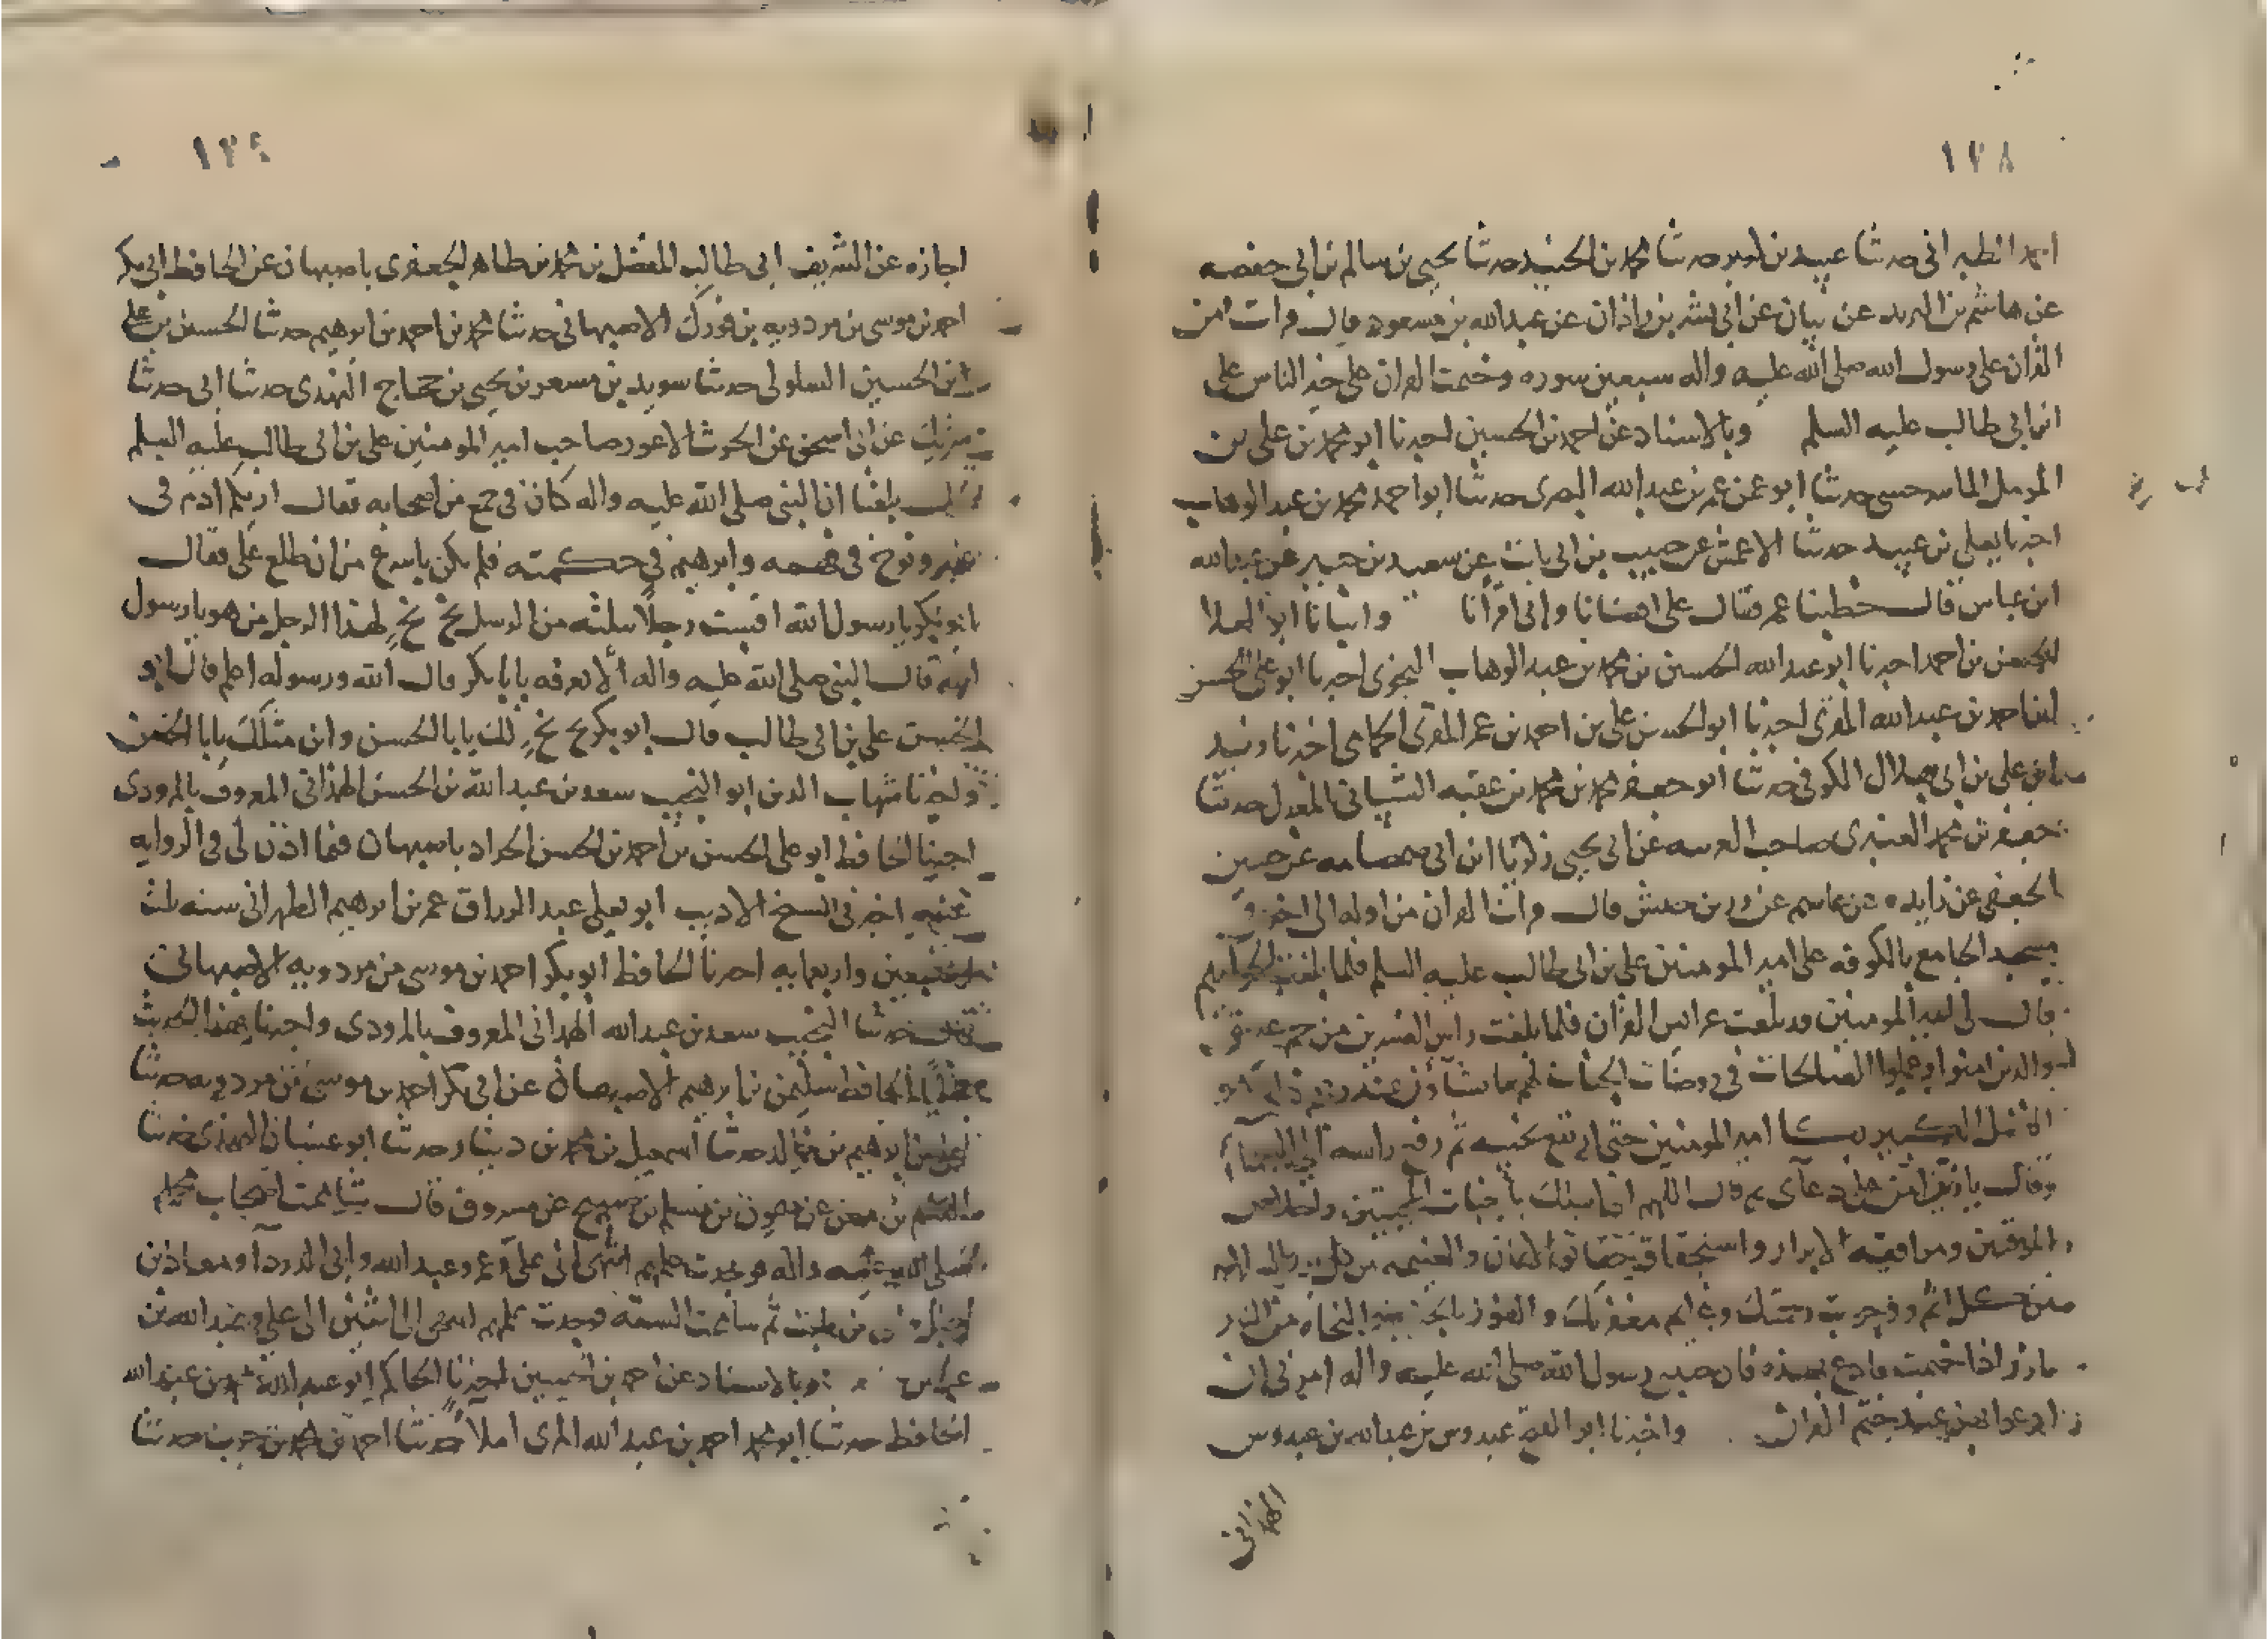 ١٢٨
احمد الطبراني حدثنا عبيد بن حدثنا محمد بن الجنيد حدثنا يحيى بن سالم بن ابي حفصه
عن هاشم بن البريد عن بيان عن ابي بشر بن زاذان عن عبدالله بن مسعود قال قرات من
القران على رسول الله صلى الله عليه واله سبعين سوره وختمت القران على خير الناس على
ابن ابي طالب عليه السلم وبالاسناد عن احمد بن الحسين اخبرنا ابو محمد بن على بن
المومل حدثنا ابو عمر بن عبدالله البصرى حدثنا ابو احمد محمد بن عبد الوهاب
اخبرنا يعلى بن عبيد حدثنا الاعمش عن حبيب بن ابى ثابت عن سعيد بن جبير عن عبدالله
ابن عباس قال خطبنا عمر فقال على اقضانا وابي اقرانا وانبانا ابو العلا
الحسن بن احمد اخبرنا ابو عبدالله الحسين بن محمد بن عبد الوهاب النحوى اخبرنا ابو على الحسن
ابن احمد بن عبدالله المقرى اخبرنا ابو الحسن على بن احمد بن عمر المقرى الحمامى اخبرنا زيد
ابن على بن ابي بلال الكوفى حدثنا ابو جعفر محمد بن محمد بن عقبه الشيبانى المعدل حدثنا
جعفر بن محمد العنبرى صاحب عن ابى يحيى زكريا ابن ابى صمصامه عن حسين
الجعفى عن زايده عن عاصم عن زر بن حبيش قال قرات القران من اوله الى اخره فى
مسجد الجامع بالكوفه على امير المومنين على بن ابى طالب عليه السلم فلما بلغت الحواميم
قال لى امير المومنين قد بلغت عرايس القران فلما بلغت راس العشرين من حم عسق
والذين امنوا وعملوا الصالحات فى روضات الجنات لهم ما يشاؤن عند ربهم ذلك هو
الفضل الكبير بكا امير المومنين حتى ارتفع نحيبه ثم رفع راسه الى السماء
وقال يا زر امن على دعآى ثم قال اللهم انى اسئلك اخبات المخبتين واخلاص
الموقنين ومرافقه الابرار واستحقاق حقايق الايمان والغنيمه من كل بر والسلامه
من كل اثم ووجوب رحمتك وعزايم مغفرتك والفوز بالجنه والنجاه من النار
يا زر اذا ختمت فادع بهذه فان حبيبى رسول الله صلى الله عليه واله امرنى ان
ادعوا بهن عند ختم القران واخبرنا ابو الفتح عبدوس بن عبدالله بن عبدوس
الهمدانى
١٢٩
اجازه عن الشريف ابى طالب المفضل بن محمد بن طاهر الجعفرى باصبهان عن الحافظ ابى بكر
احمد بن موسى بن مردويه بن فورك الاصبهانى حدثنا محمد بن احمد بن ابرهيم حدثنا الحسين بن على
ابن الحسين السلولى حدثنا سويد بن مسعر بن يحيى بن حجاج النهدى حدثنا ابى حدثنا
شريك عن ابى اسحق عن الحرث الاعور صاحب امير المومنين على بن ابى طالب عليه السلم
قال بلغنا ان النبى صلى الله عليه واله كان فى جمع من اصحابه فقال اريكم ادم فى
ونوح فى فهمه وابرهيم فى حكمته فلم يكن باسرع من ان طلع على فقال
ابو بكر يا رسول الله اقست رجلا بثلثه من الرسل بخ بخ لهذا الرجل من هو يا رسول
الله قال النبى صلى الله عليه واله الا تعرفه يابا بكر قال الله ورسوله اعلم قال ابو
الحسن على بن ابى طالب قال ابو بكر بخ بخ لك يابا الحسن واين مثلك يابا الحسن
واخبرنا شهاب الدين ابو النجيب سعد بن عبدالله بن الحسن الهمدانى المعروف بالمرودى
اخبرنا الحافظ ابو على الحسن بن احمد بن الحسن الحداد باصبهان فيما اذن لى فى الروايه
عنه اخبرنى الشيخ الاديب ابو يعلى عبد الرزاق عمر بن ابرهيم الطهرانى سنه ثلث
وسبعين واربعمايه اخبرنا الحافظ ابو بكر احمد بن موسى بن مردويه الاصبهانى
حدثنا النجيب سعد بن عبدالله الهمدانى المعروف بالمرودى واخبرنا بهذا الحديث
عاليا الحافظ سليمن بن ابرهيم الاصبهانى عن ابى بكر احمد بن موسى بن مردويه حدثنا
ابرهيم بن حدثنا اسمعيل بن محمد بن دينار حدثنا ابو عسان النهدى حدثنا
القسم بن معن عن بن مسلم بن عن مسروق قال شاممت اصحاب محمد
صلى الله عليه واله فوجدت علمهم انتهى الى على وعمر وعبد الله وابى الدردآ ومعاذ بن
جبل وزيد بن ثابت ثم شاممت السته فوجدت علمهم انتهى الى اثنين الى على وعبد الله بن
عباس وبالاسناد عن احمد بن الحسين اخبرنا الحاكم ابو عبدالله محمد بن عبدالله
الحافظ حدثنا ابو محمد احمد بن عبدالله المزى املاً حدثنا احمد بن محمد بن حرب حدثنا